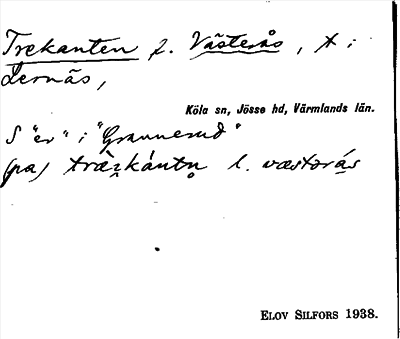 Trekanten l. Västerås, t i
Lernäs,
Köla sn, Jösse hd, Värmlands län.
S "er" i "Grannerud"
(pa) l. væstorás
ELOV SILFORS 1938.